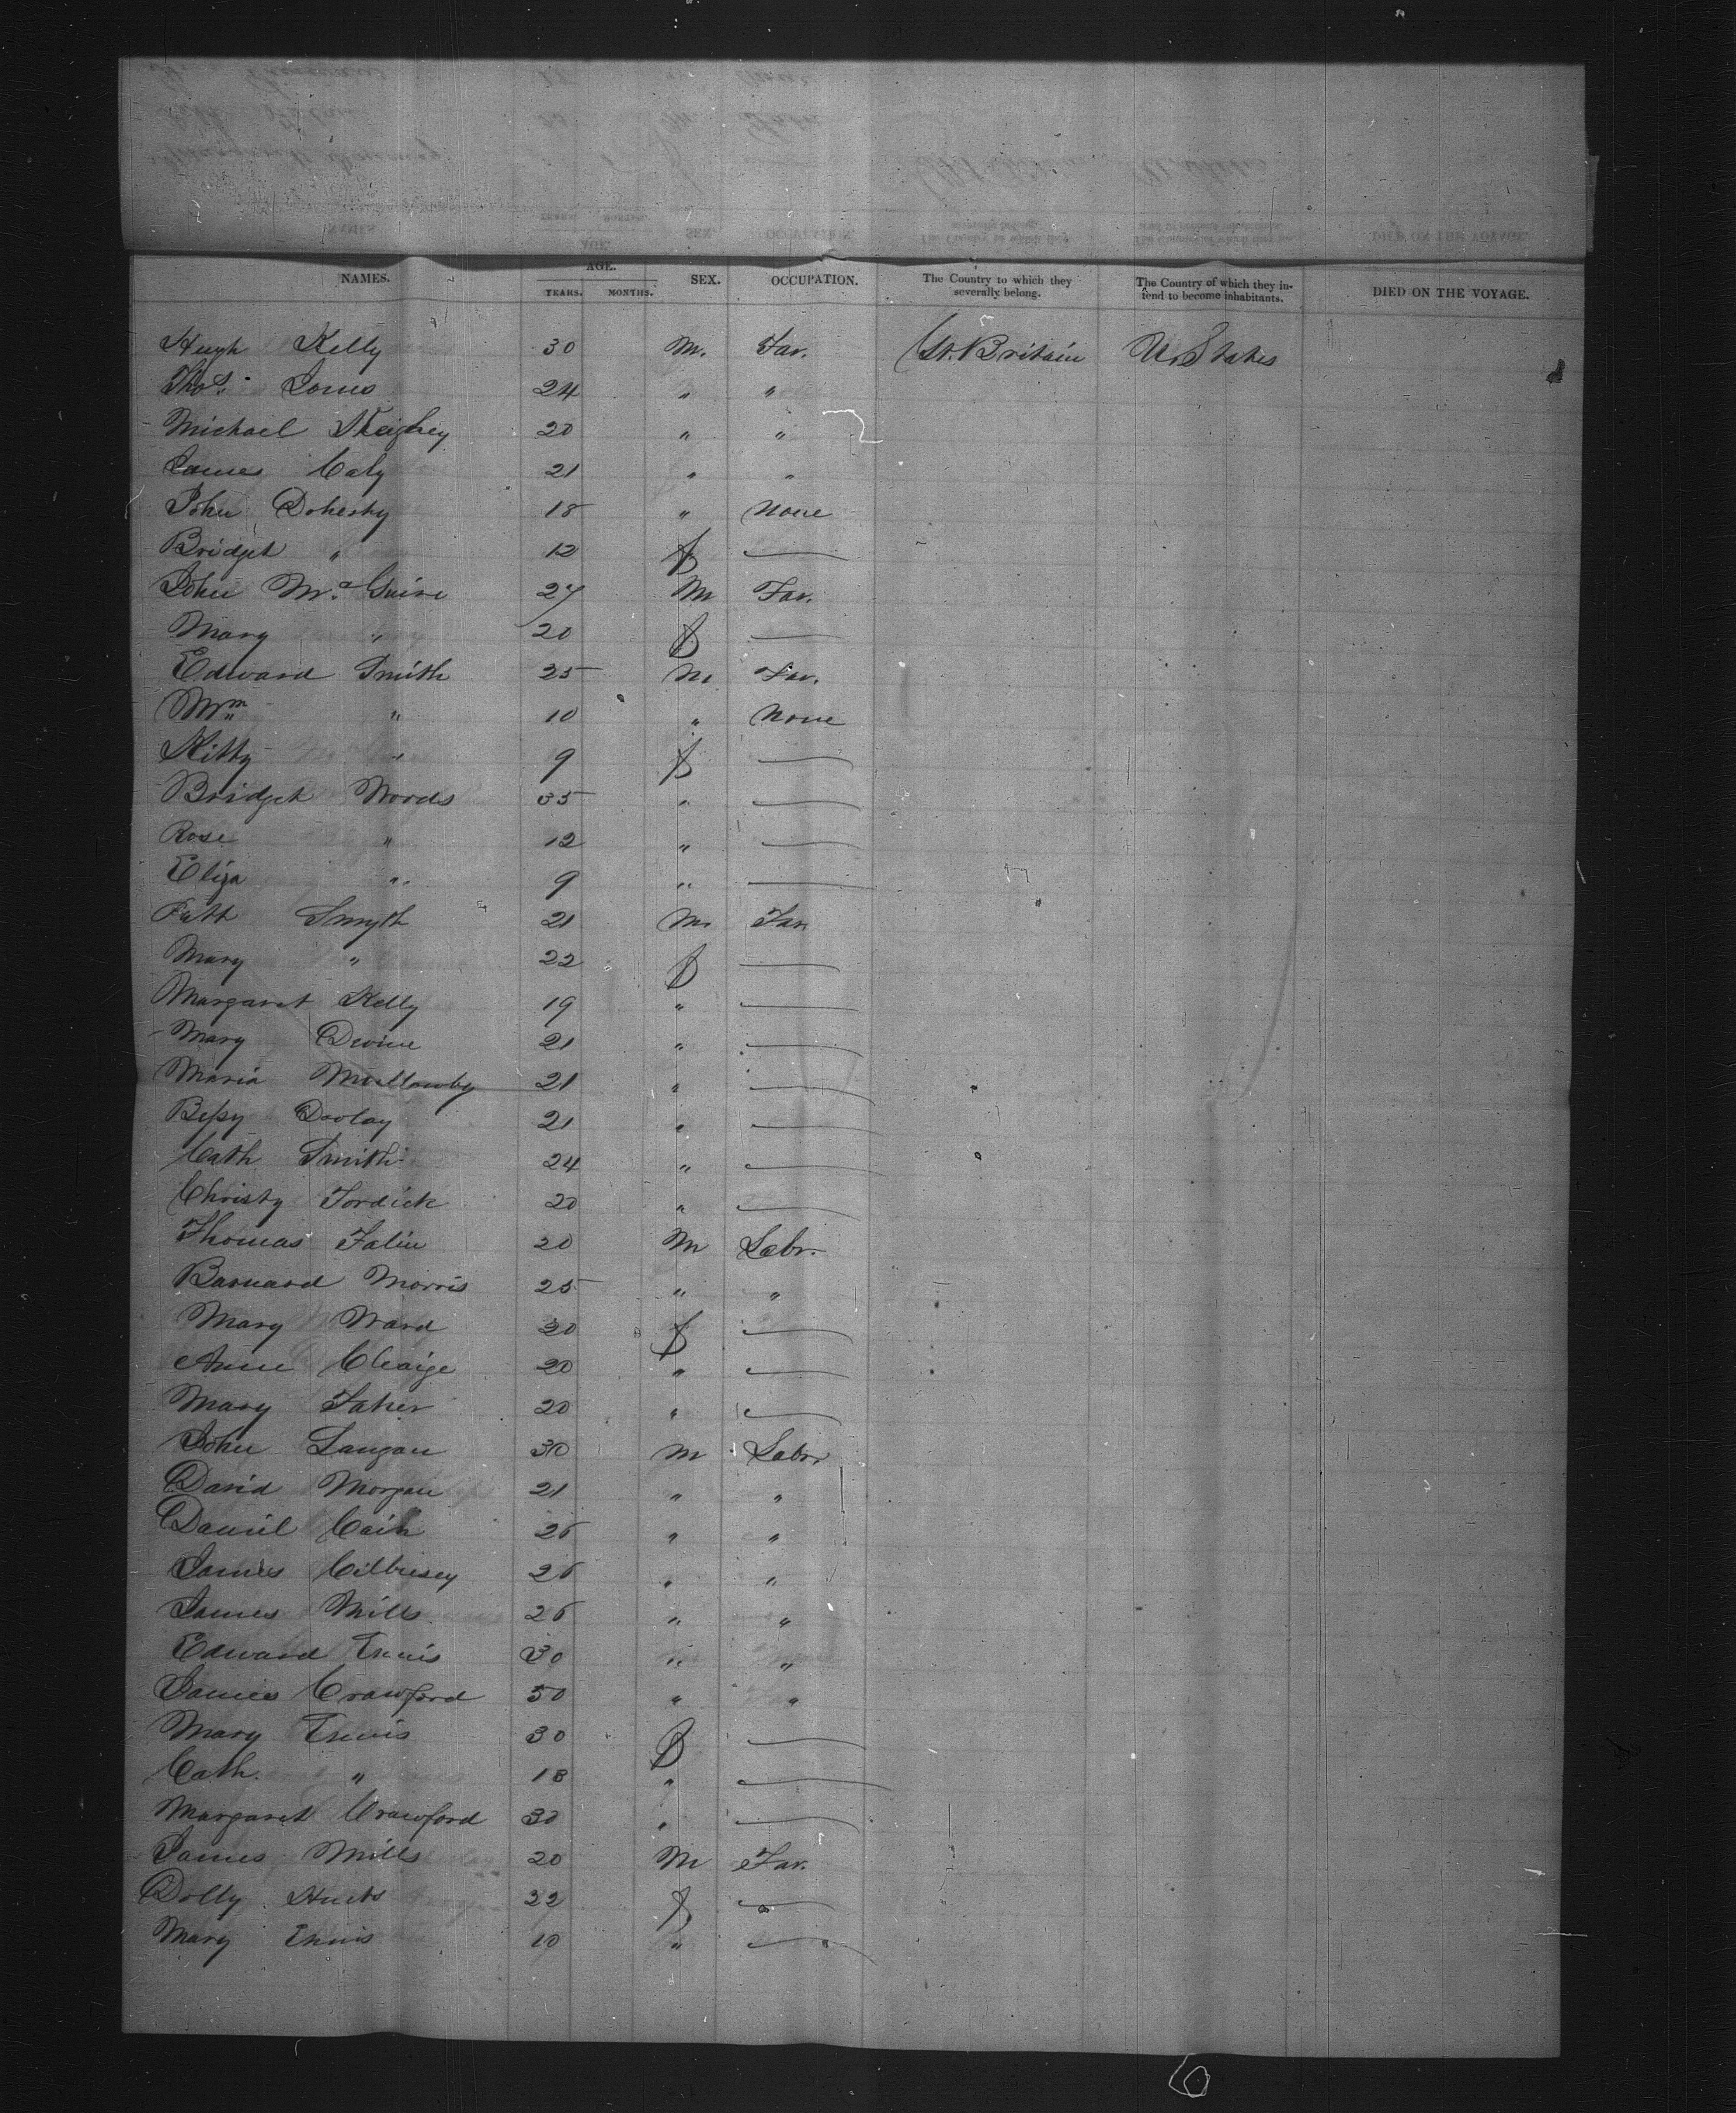 NAMES. AGE. SEX. OCCUPATION. The Country to which they severally belong. The Country of which they intend to become inhabitants. DIED ON THE VOYAGE.
YEARS. MONTHS.
Hugh Kelly 30 M. Far. Gt. Britain U. States
Thos. 24 " "
Michael 20 " "
James 21 " "
John Doherty 18 " None
Bridget " 12 f —
John Mc Guire 27 M Far.
Mary " 20 f —
Edward Smith 25 M Far.
Wm " 10 " None
Kitty " 9 f —
Bridget Woods 35 " —
Rose " 12 " —
Eliza " 9 " —
Patt Smyth 21 M Far
Mary " 22 f —
Margaret Kelly 19 " —
Mary Devine 21 " —
Maria 21 " —
Bessy Doolay 21 " —
Cath Smith 24 " —
Christy 20 " —
Thomas 20 M Labr.
Barnard Morris 25 " "
Mary Ward 20 f —
Anne 20 " —
Mary 20 " —
John Langan 30 M Labr
David Morgan 21 " "
Daniel Cain " "
James " "
James Mills " "
Edward Ennis 30 " "
James Crawford 50 " "
Mary Ennis 30 f —
Cath. " 18 " —
Margaret Crawford 30 " —
James Mills 20 M Far.
Dolly 22 f —
Mary Ennis 10 " —
6